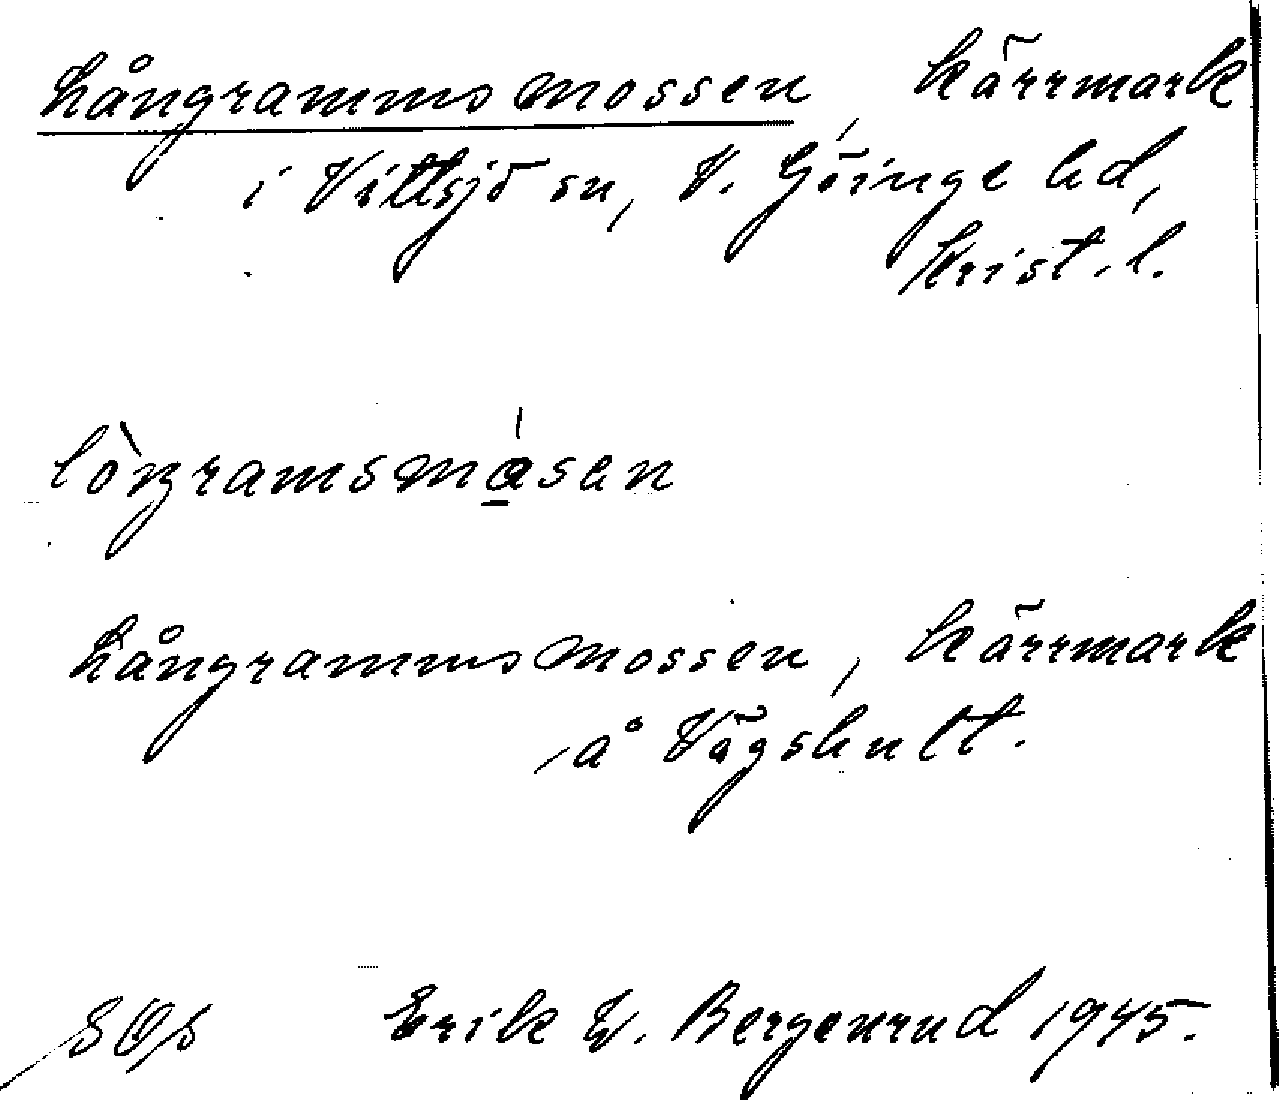 Långrammsmossen, kärrmark
i Vittsjö sn, V. Göinge hd,
Krist. l.
lòŋramsmósen
Långrammsmossen, kärrmark
å Vägshult.
Erik W. Bergenrud 1945.